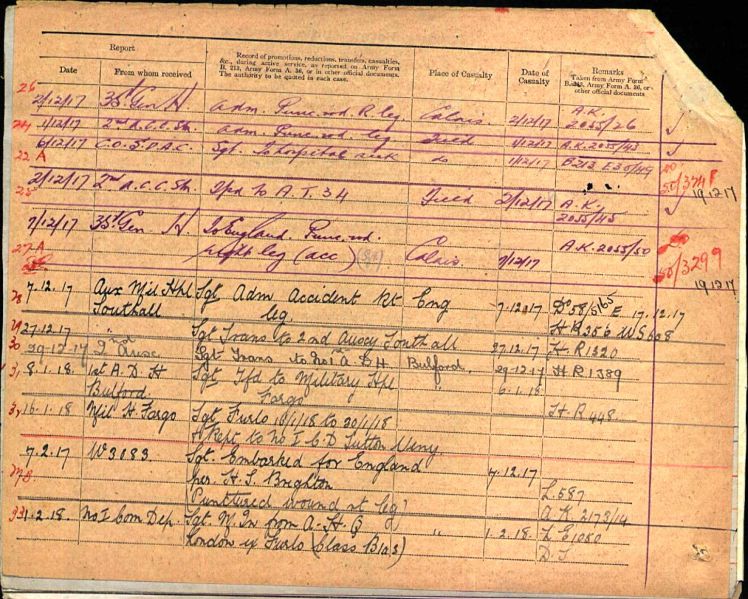 Report
Record of promotions, reductions, transfers, casualties,
&c., during active service, as reported on Army Form
B. 213, Army Form A. 36, or in other official documents.
The authority to be quoted in each case.
Place of Casualty
Date of
Casualty
Remarks
Taken from Army Form
B.213, Army Form A. 36, or
other official documents
Date
From whom received
26
2/12/17 35 Gen H adm. Punc. wd. R. leg. Calais 2/12/17 A.K.
2055/26
24 1/12/17 2nd A.C.C. Stn. adm. Punc. wd. leg Field 1/12/17 A.K. 2055/45
6/12/17 C.O. 5 D.A.C. Sgt. To hospital sick do 1/12/17 B213
22 A
50/3748
19 12 17
2/12/17 2nd A.C.C. Stn. Tfd to A.T. 34 Field 2/12/17 A.K.
25
2055/45
7/12/17 35 Gen H To England. Punc. wd. A.K. 2055/50
27-A
right leg (acc) Calais 7/12/17
50/3299
19 12 17
28 7.12.17 Aux Mil Hpl Sgt Adm Accident Rt Eng 7.12.17 D 58/5165 E 17.12.17
Southall leg. H.R 256
29 27.12.17 " Sgt Trans to 2nd Auscy Southall 27.12.17 H.R 1320
30 29-12-17 2nd Ausc. Sgt Trans to No 1 A D H Bulford. 29-12-17 H R 1389
31 8.1.18 1st A.D.H Sgt Tfd to Military Hpl " 6.1.18
Bulford Fargo
32 16.1.18 Mil H. Fargo Sgt. Furlo 16/1/18 to 30/1/18 H.R 448.
& Rept to No I C D Sutton Veny.
7.2.17 W3083. Sgt. Embarked for England 7.12.17
per. H.S. Brighton L.587
Punctured wound rt leg A K 2173/14
33 1.2.18. No I Com Dep. Sgt. M. In from A.H.Q " 1.2.18. L E1080
London ex Furlo (Class B1a3) D.I